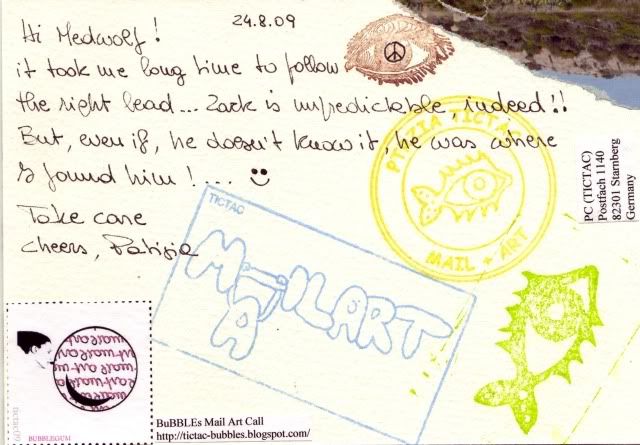 24.8.09
Hi Medwolf!
it took me long time to follow
the right lead... Zack is unpredickable, indeed!!
But, even if, he doesn't know it, he was where
I found him!...
Take care
cheers, Patizia
PTIZIA TICTAC
MAIL + ART
PC (TICTAC)
Postfach 1140
82301 Starnberg
Germany
TICTAC
MAIL ART
mail art
tictac-09
BUBBLEGUM
BuBBLEs Mail Art Call
http://tictac-bubbles.blogspot.com/